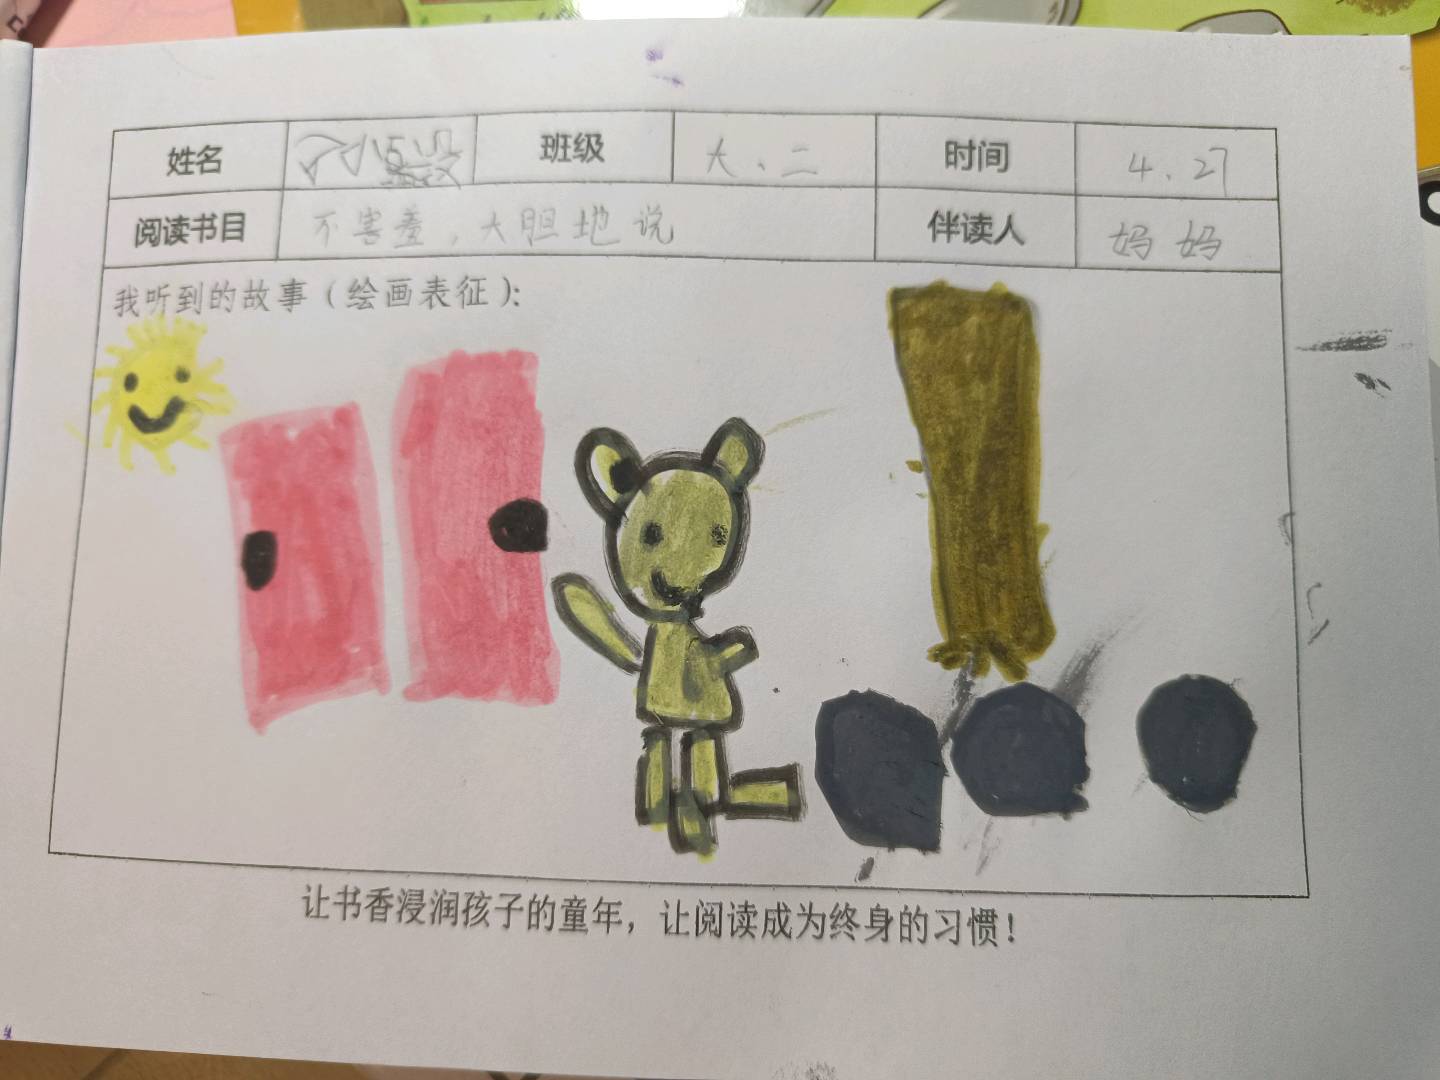 姓名 班级 大、二 时间 4.27
阅读书目 不害羞,大胆地说 伴读人 妈妈
我听到的故事(绘画表征):
让书香浸润孩子的童年,让阅读成为终身的习惯!